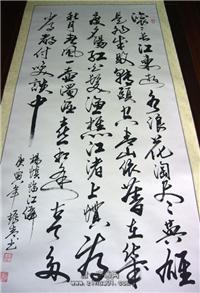 滚滚长江东逝水浪花淘尽英雄
是非成败转头空青山依旧在几
度夕阳红白发渔樵江渚上惯看
秋月春风一壶浊酒喜相逢古今多
少事都付笑谈中
杨慎临江仙
庚寅年